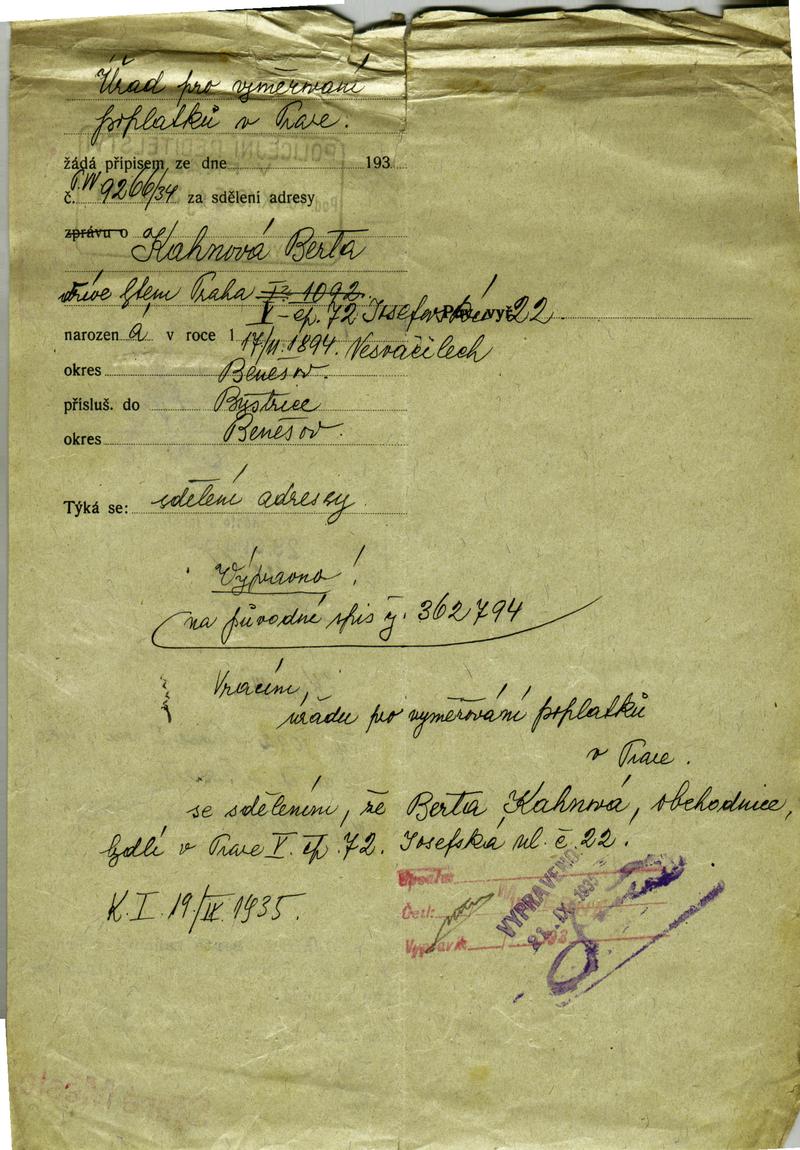 Úřad pro vyměřování
poplatků v Praze.
žádá přípisem ze dne 193
č. 9266/34 za sdělení adresy
zprávu o
Kahnová Berta
Praha I. 1092.
V-čp. 72 Josefovská 22.
narozen á v roce 1 17/II. 1894. Vesváčilech
okres Benešov.
přísluš. do Bystřice
okres Benešov.
Týká se: sdělení adresy
Výpravno!
na původné spis č. 362794
Vracím,
úřadu pro vyměřování poplatků
v Praze.
se sdělením, že Berta Kahnová, obchodnice,
bydlí v Praze V. čp. 72. Josefská ul. č. 22.
K. I. 19/IX. 1935.
Opsala:
Četl:
Vypravil: 193
VYPRAVENO
POLICEJNÍ ŘEDITELSTVÍ
Staré Město